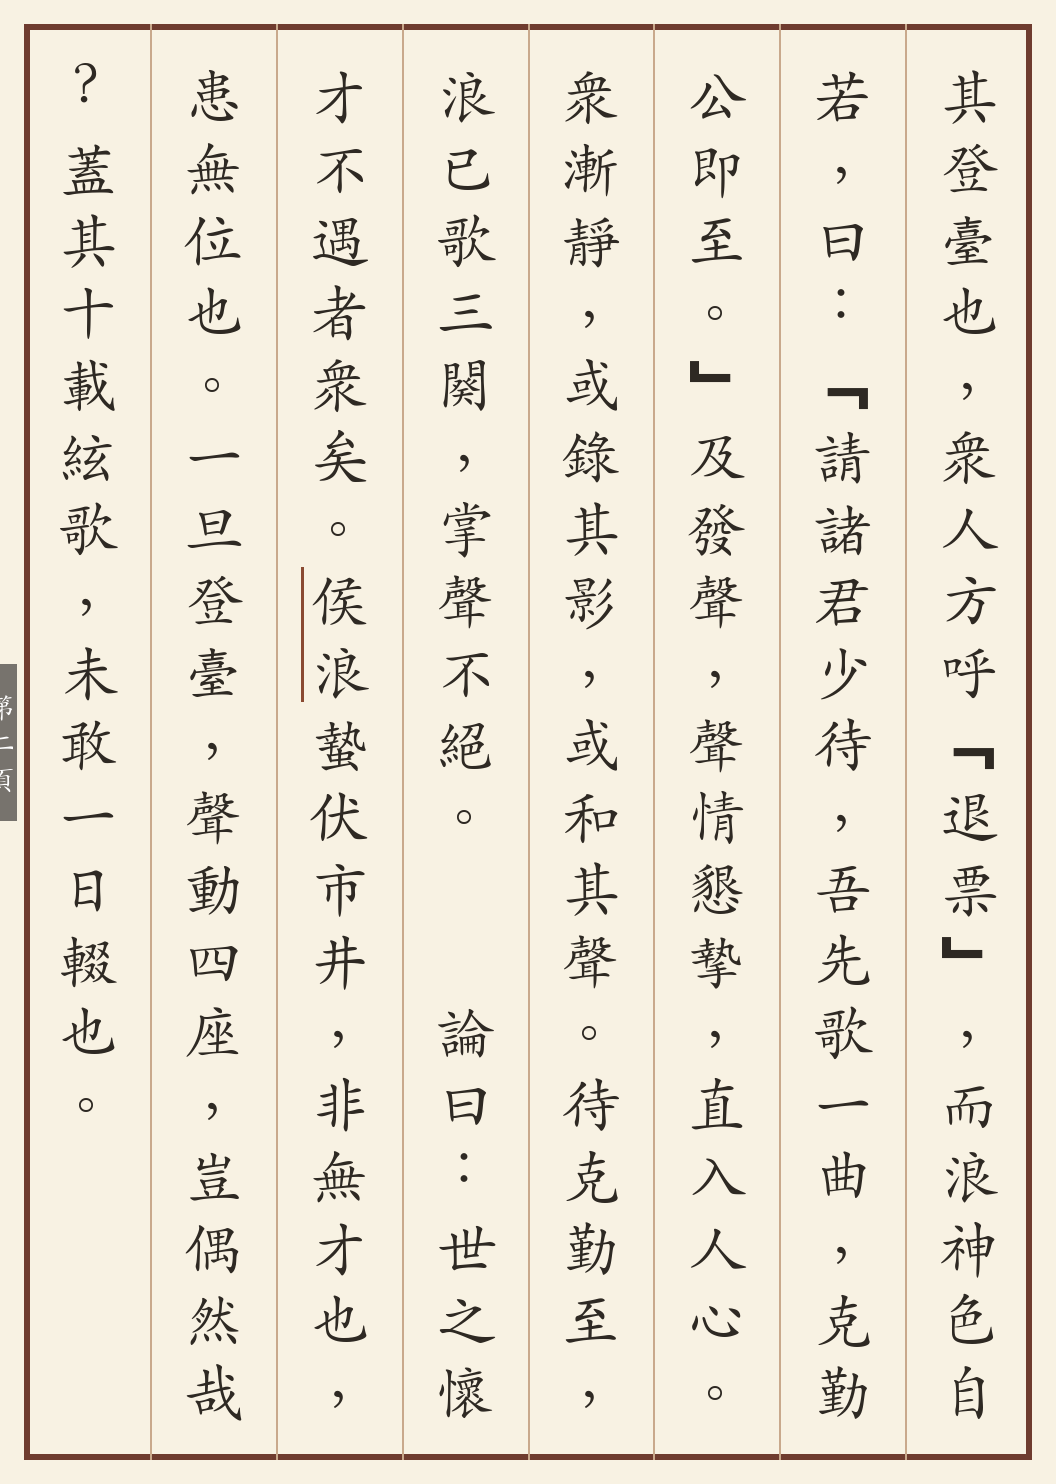 其登臺也，衆人方呼『退票』，而浪神色自
若，曰：『請諸君少待，吾先歌一曲，克勤
公即至。』及發聲，聲情懇摯，直入人心。
衆漸靜，或錄其影，或和其聲。待克勤至，
浪已歌三闋，掌聲不絕。　　論曰：世之懷
才不遇者衆矣。侯浪蟄伏市井，非無才也，
患無位也。一旦登臺，聲動四座，豈偶然哉
？蓋其十載絃歌，未敢一日輟也。
第二頁